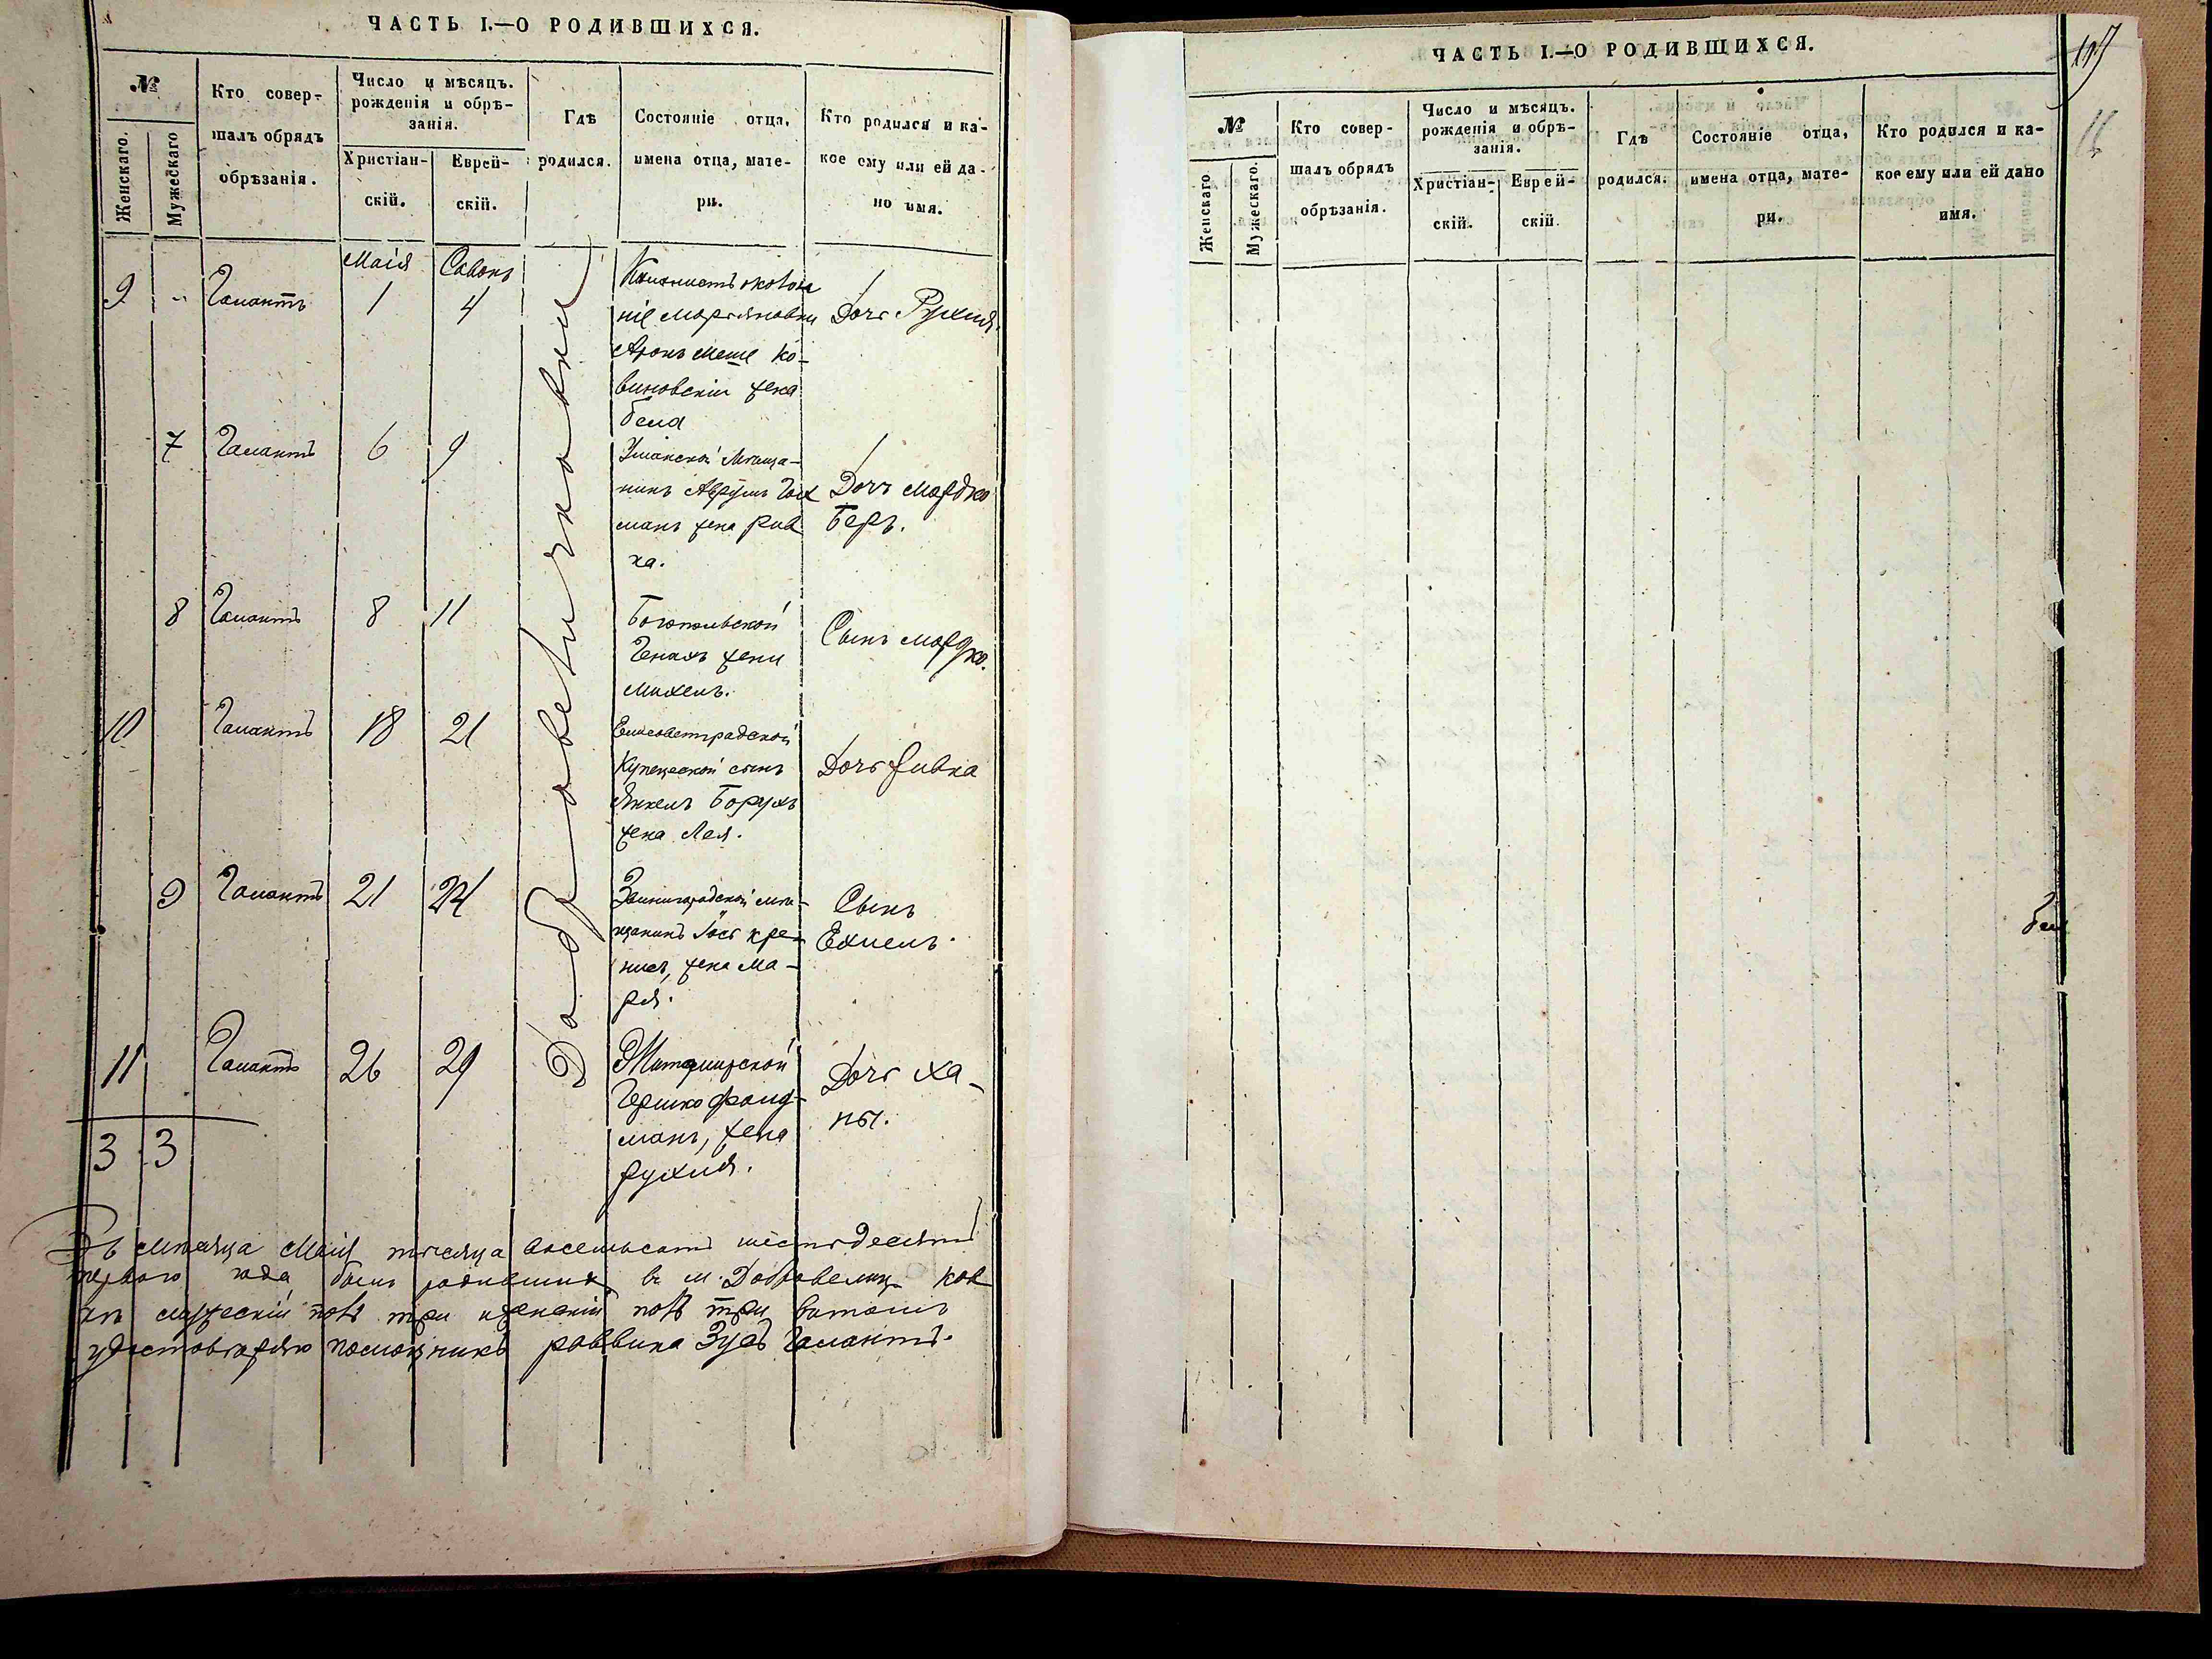 ЧАСТЬ I.—О РОДИВШИХСЯ.
№
Женскаго.
Мужескаго
Кто совер-
шалъ обрядъ
обрѣзанія.
Число и мѣсяцъ.
рожденія и обрѣ-
занія.
Христіан-
скій.
Еврей-
скій.
Гдѣ
родился.
Состояніе отца,
имена отца, мате-
ри.
Кто родился и ка-
кое ему или ей да-
но имя.
Маія
9 " Галантъ 1 4
нiе
Аронъ Меше Ко-
виновскiй жена
Бела
Дочь Рухля.
7 Галантъ 6 9
Уманской Мѣща-
нинъ Аврумъ
манъ жена Рив
ка.
Дочь Мордко
Беръ.
8 Галантъ 8 11
Богопольской
жени
Сынъ Мордко.
10 Галантъ 18 21
Елисаветградской
Купеческой сынъ
Янкель Борухъ
жена Лея.
Дочь Ривка
9 Галантъ 21 24
Звенигородской мѣ-
щанинъ Іосъ Кре-
нисъ, жена Ма-
ря.
Сынъ
Ехиель.
11 Галантъ 26 29
Житомирской
Гершко Фаид-
манъ, жена
Рухля.
Дочь Ха-
ны.
3 3
Въ мѣсяца Маія тысяца восемьсотъ шестьдесятъ
первого года былъ родившихъ в м. Добровеличков
къ мужескій полъ три и женскій полъ три вътомъ
удостовѣряю помощникъ раввина Зусъ Галантъ.
ЧАСТЬ I.—О РОДИВШИХСЯ.
№
Женскаго
Мужескаго.
Кто совер-
шалъ обрядъ
обрѣзанія.
Число и мѣсяцъ.
рожденія и обрѣ-
занія.
Христіан-
скій.
Еврей-
скій.
Гдѣ
родился.
Состояніе отца,
имена отца, мате-
ри.
Кто родился и ка-
кое ему или ей дано
имя.
16